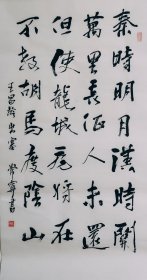 秦時明月漢時關
萬里長征人未還
但使龍城飛將在
不教胡馬度陰山
王昌齡出塞